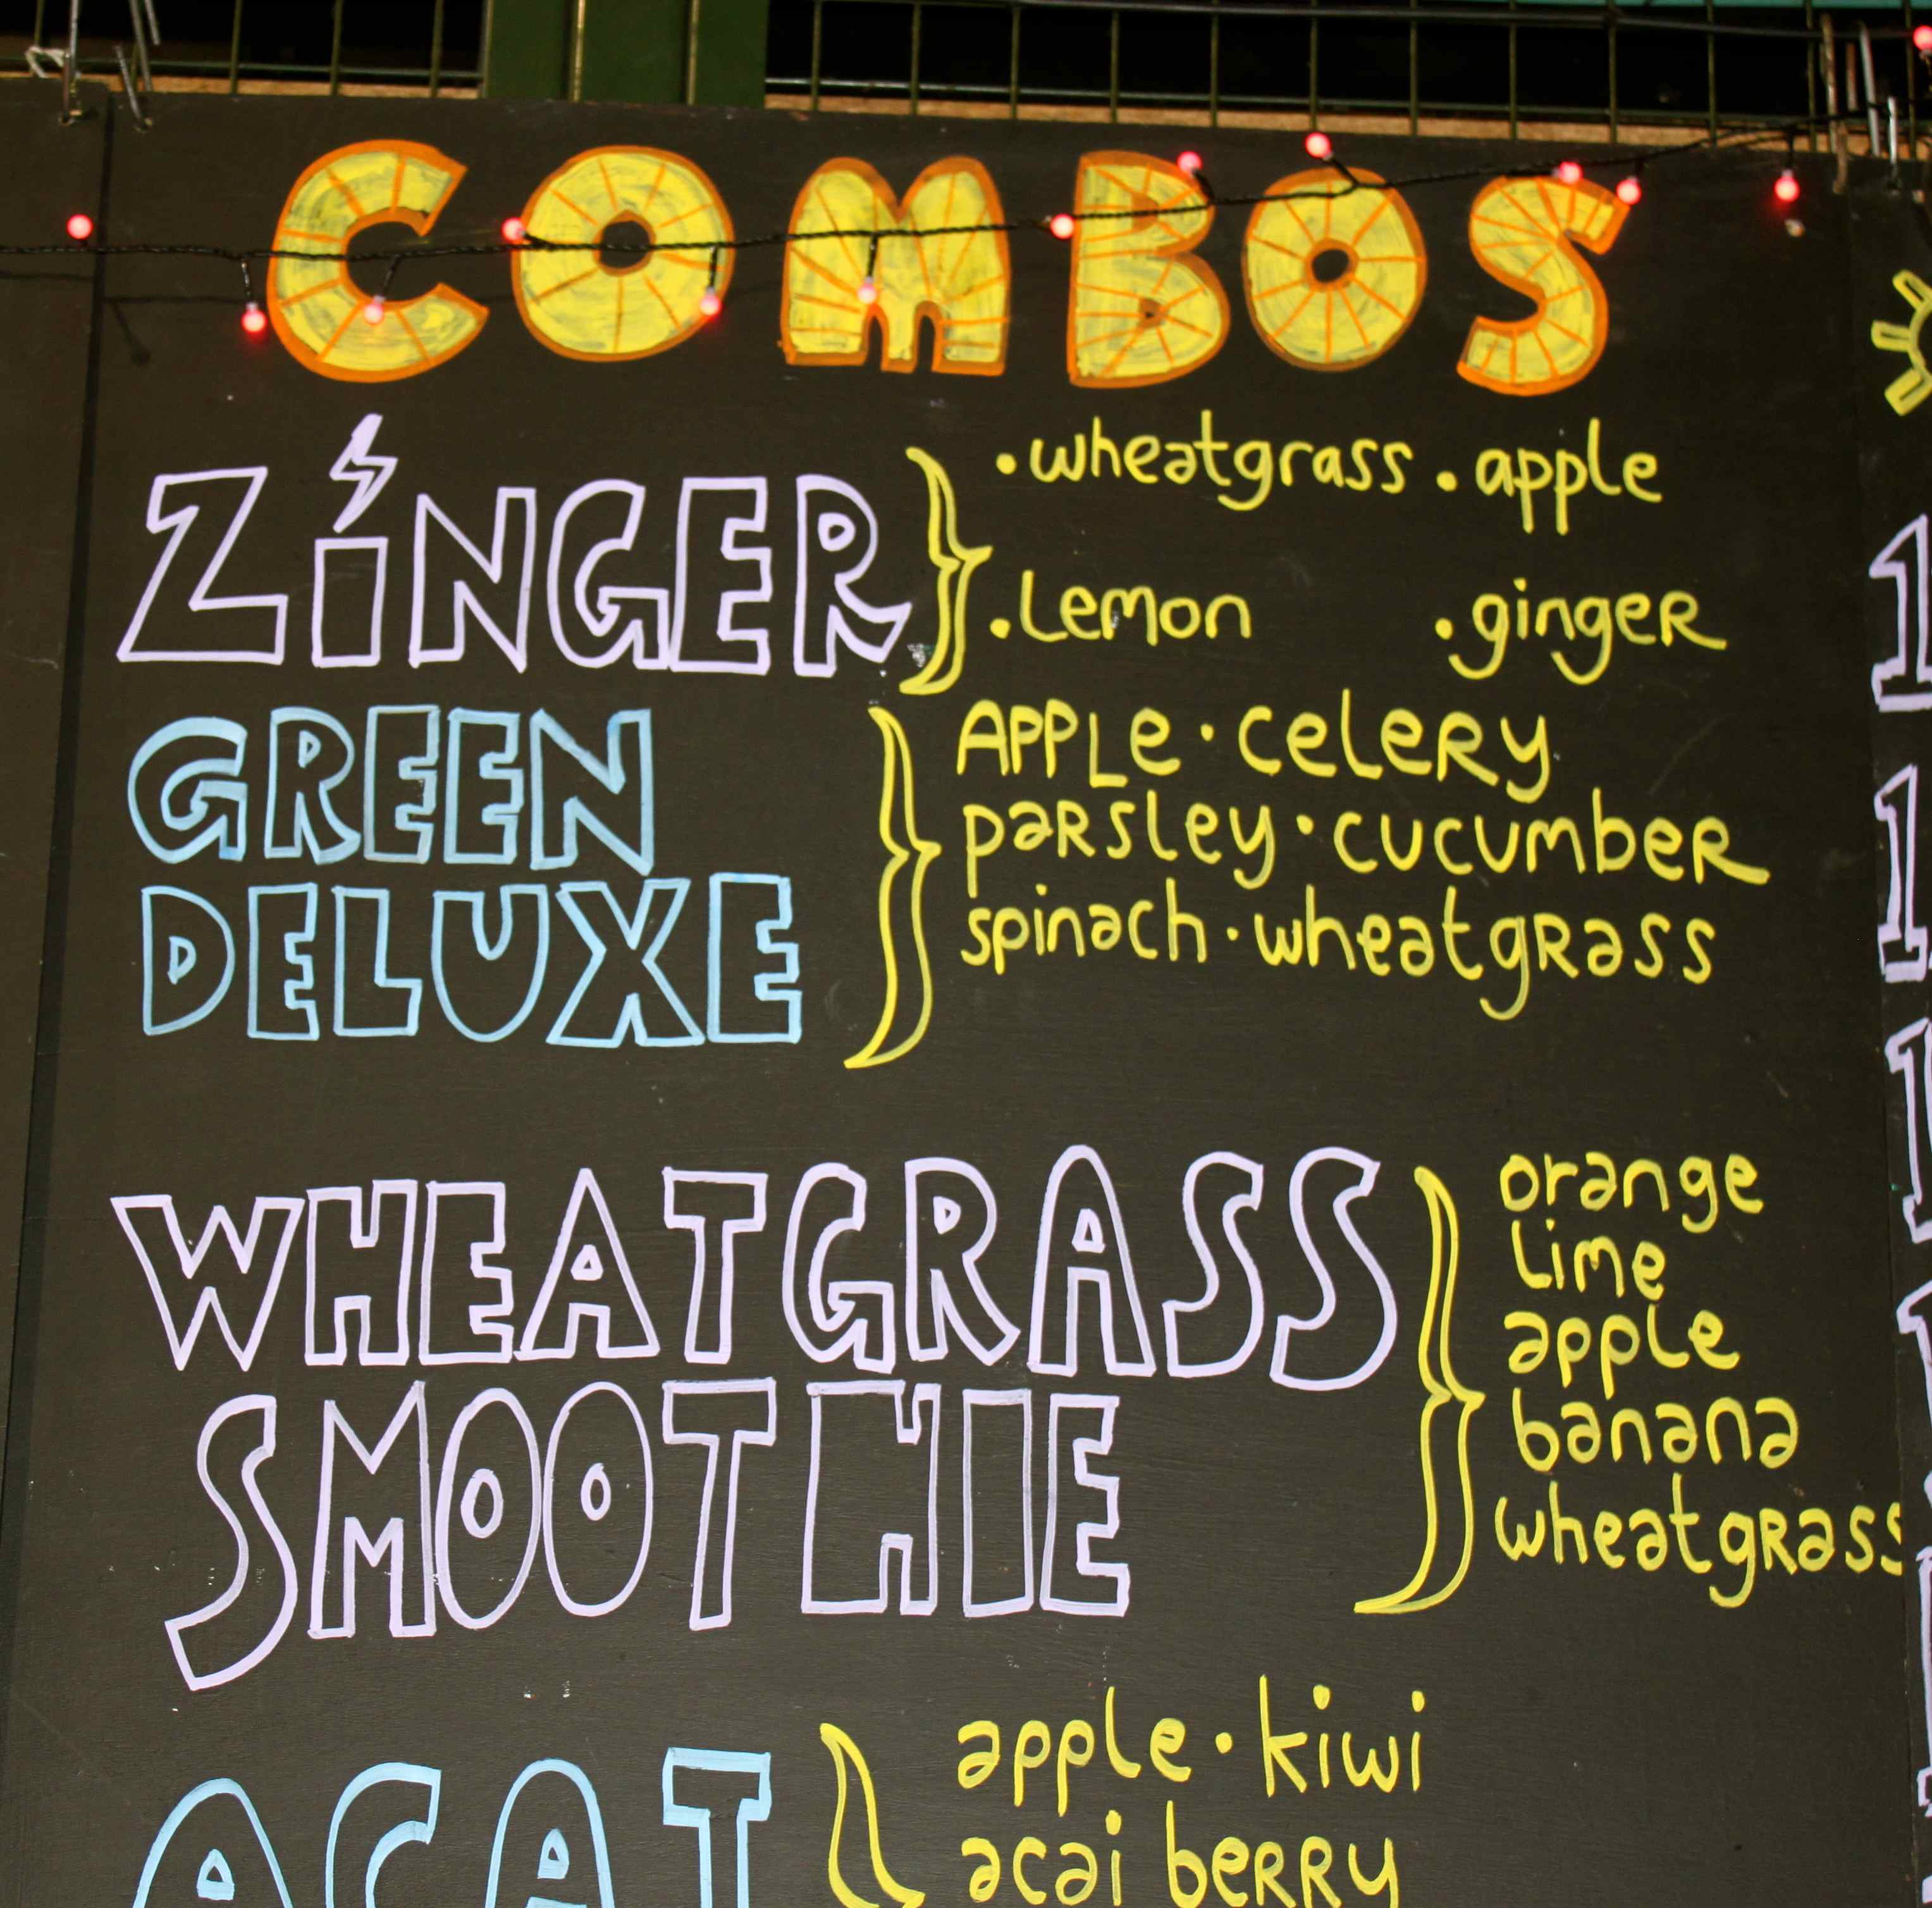 COMBOS
ZiNGER
•wheatgrass •apple
•Lemon •ginger
GREEN
DELUXE
APPLe • celeRy
paRsley • cucumbeR
spinach • wheatgRass
WHEATGRASS
SMOOTHIE
orange
Lime
appLe
banana
wheatgRass
ACAI
appLe • kiwi
acai beRRy
1
1
1